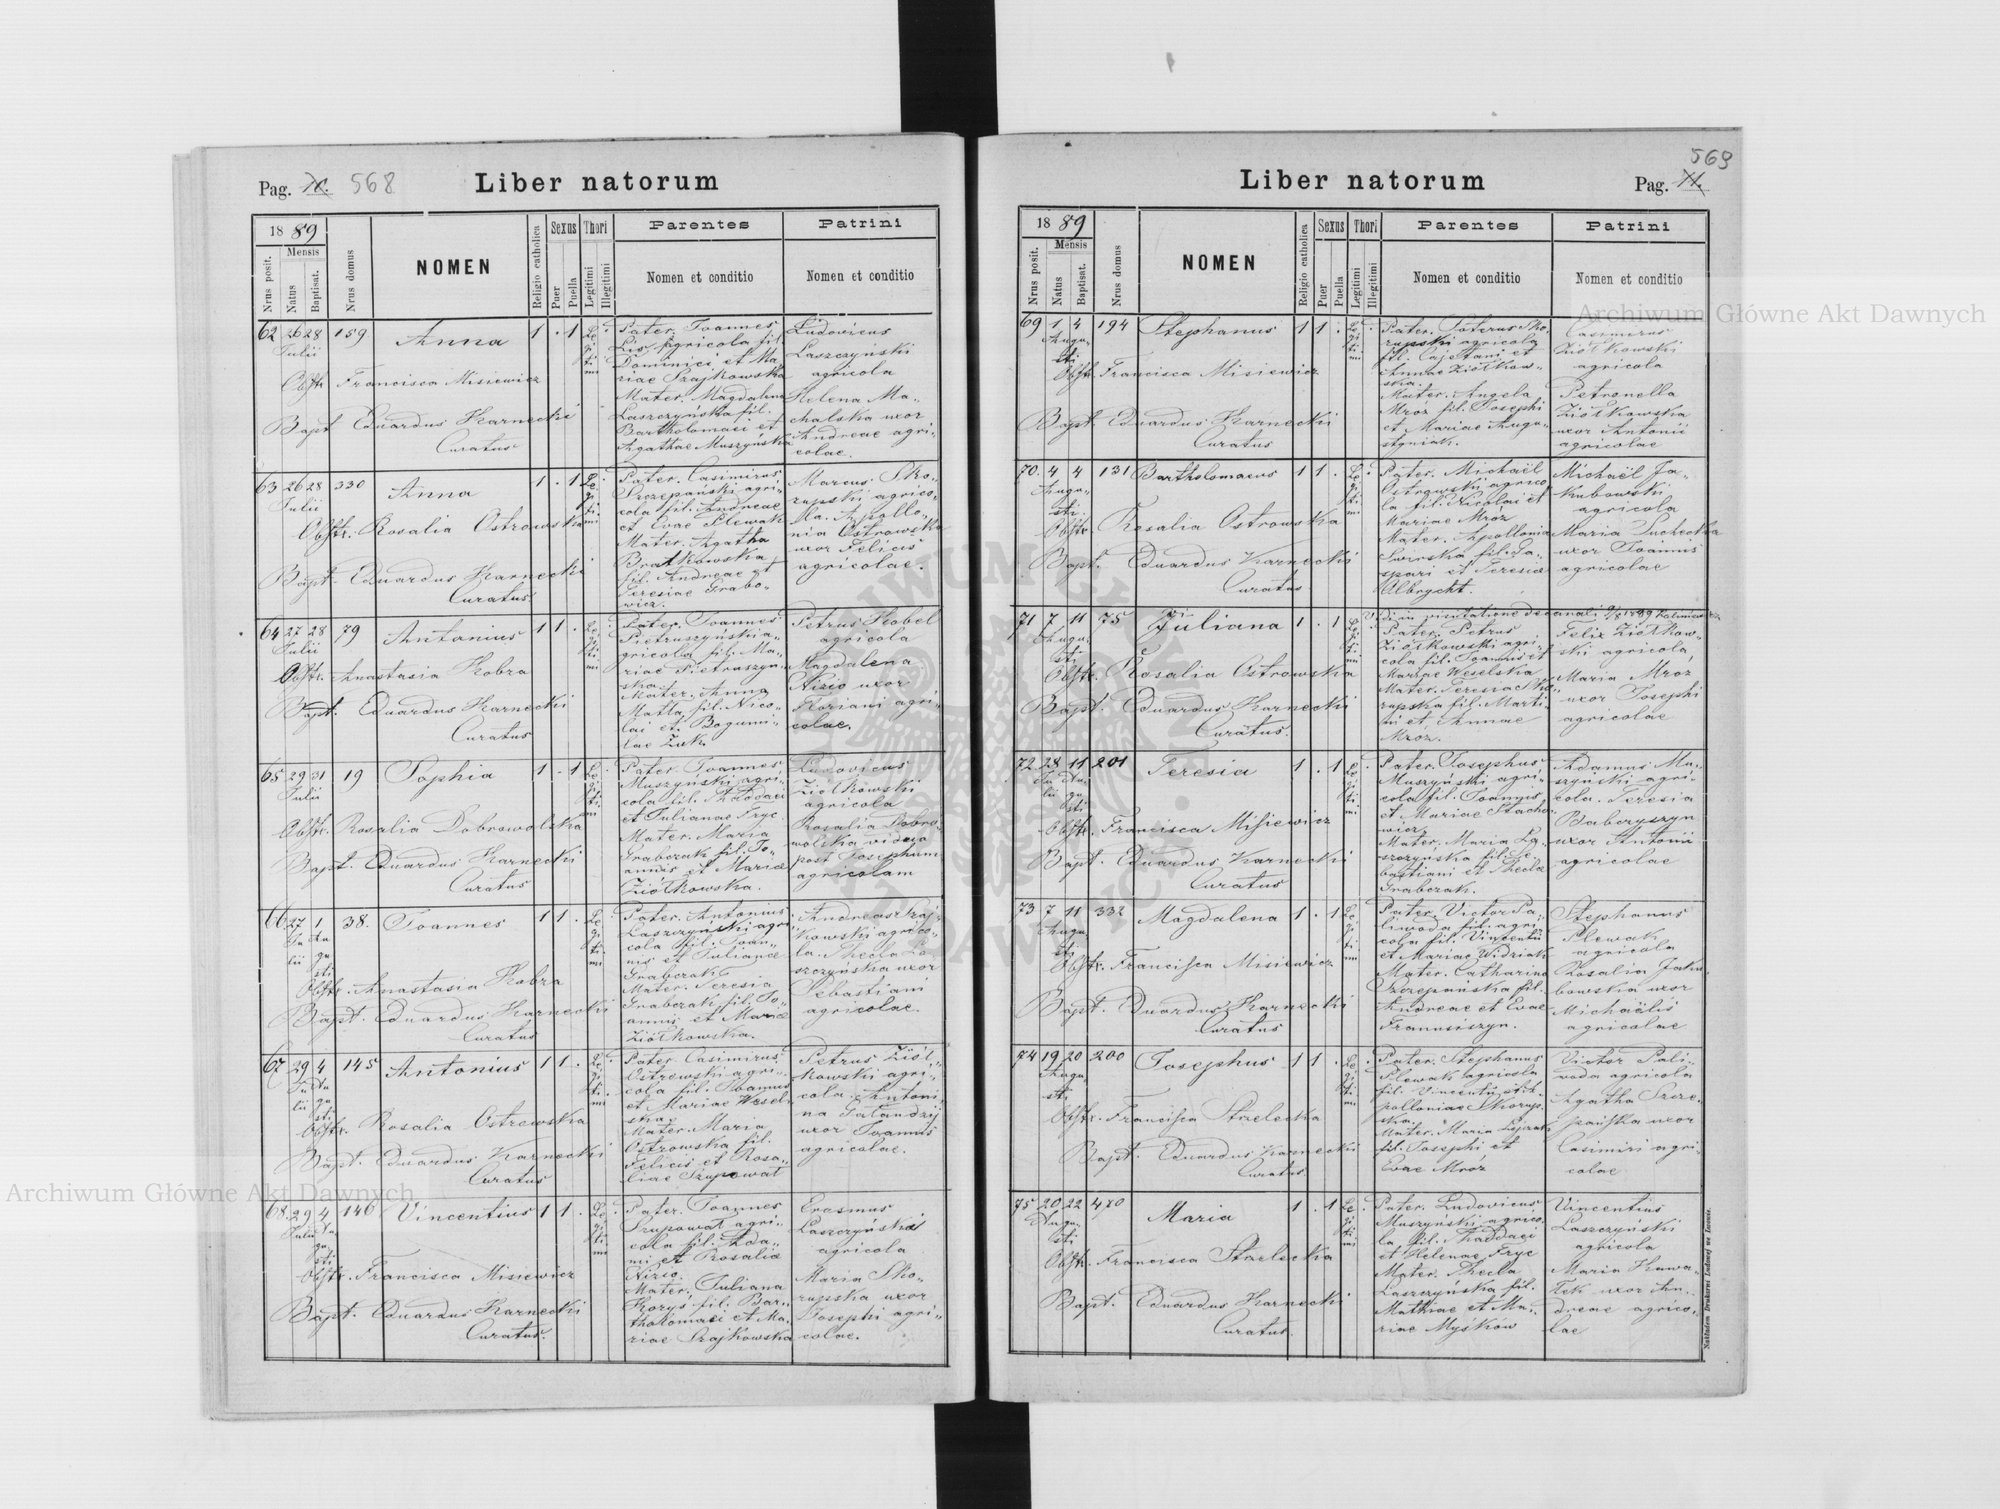 Pag. 10. 568
Liber natorum
1889
Nrus posit.
Mensis
Natus
Baptisat.
Nrus domus
NOMEN
Religio catholica
Sexus
Puer
Puella
Thori
Legitimi
Illegitimi
Parentes
Nomen et conditio
Patrini
Nomen et conditio
62 26 28 159 Anna 1 . 1
Julii
Legitimi
Obstr. Francisca Misiewicz
Bapt. Eduardus Karnecki
Curatus
Pater. Joannes
Lis agricola fil.
Dominici et Ma-
riae Szajkowska
Mater. Magdalena
Laszczyńska fil.
Bartholomaei et
Agathae Muszyńska
Ludovicus
Laszczyński
agricola
Helena Ma-
chalska uxor
Andreae agri-
colae.
63 26 28 330 Anna 1 . 1
Julii
Legitimi
Obstr. Rosalia Ostrowska
Bapt. Eduardus Karnecki
Curatus
Pater. Casimirus
Szczepański agri-
cola fil. Andreae
et Evae Plewak
Mater. Agatha
Bratkowska
fil. Andreae et
Teresiae Grabo-
wicz.
Marcus Sko-
rupski agrico-
la. Apollo-
nia Ostrowska
uxor Felicis
agricolae.
64 27 28 79 Antonius 1 1 .
Julii
Legitimi
Obstr. Anastasia Kobra
Bapt. Eduardus Karnecki
Curatus
Pater. Joannes
Pietruszyński a-
gricola fil. Ma-
riae Pietruszyń-
ska.
Mater. Anna
Matla fil. Nico-
lai et Bogumi-
lae Żuk.
Petrus Kobel
agricola
Magdalena
Nizio uxor
Floriani agri-
colae.
65 29 31 19 Sophia 1 . 1
Julii
Legitimi
Obstr. Rosalia Dobrowolska
Bapt. Eduardus Karnecki
Curatus
Pater. Joannes
Muszyński agri-
cola fil. Thaddaei
et Julianae Fryc
Mater. Maria
Grabczak fil. Jo-
annis et Mariae
Ziółkowska.
Ludovicus
Ziółkowski
agricola
Rosalia Dobro-
wolska vidua
post Josephum
agricolam
66 27 1 38. Joannes 1 1 .
Julii Augusti
Legitimi
Obstr. Anastasia Kobra
Bapt. Eduardus Karnecki
Curatus
Pater. Antonius
Laszczyński agri-
cola fil. Joan-
nis et Julianae
Grabczak
Mater. Teresia
Grabczak fil. Jo-
annis et Mariae
Ziółkowska.
Andreas Szaj-
kowski agrico-
la. Thecla La-
szczyńska uxor
Sebastiani
agricolae.
67 29 4 145 Antonius 1 1 .
Julii Augusti
Legitimi
Obstr. Rosalia Ostrowska
Bapt. Eduardus Karnecki
Curatus
Pater. Casimirus
Ostrowski agri-
cola fil. Joannis
et Mariae Wesel-
ska.
Mater. Maria
Ostrowska fil.
Felicis et Rosa-
liae Szupowat
Petrus Ziół-
kowski agri-
cola. Antoni-
na Galandzij
uxor Joannis
agricolae.
68. 29 4 146 Vincentius 1 1 .
Julii Augusti
Legitimi
Obstr. Francisca Misiewicz
Bapt. Eduardus Karnecki
Curatus.
Pater. Joannes
Szupowat agri-
cola fil. Ada-
mi et Rosaliae
Nizio.
Mater. Juliana
Korys fil. Bar-
tholomaei et Ma-
riae Szajkowska
Erasmus
Laszczyński
agricola
Maria Sko-
rupska uxor
Josephi agri-
colae.
569
Liber natorum
Pag. 11.
1889
Nrus posit.
Mensis
Natus
Baptisat.
Nrus domus
NOMEN
Religio catholica
Sexus
Puer
Puella
Thori
Legitimi
Illegitimi
Parentes
Nomen et conditio
Patrini
Nomen et conditio
69 1 4 194 Stephanus 1 1 .
Augusti
Legitimi
Obstr. Francisca Misiewicz
Bapt. Eduardus Karnecki
Curatus
Pater. Soterus Sko-
rupski agricola
fil. Cajetani et
Annae Ziółkow-
ska.
Mater. Angela
Mróz fil. Josephi
et Mariae Augu-
styniak.
Casimirus
Ziółkowski
agricola
Petronella
Ziółkowska
uxor Antonii
agricolae
70. 4 4 131 Bartholomaeus 1 1 .
Augusti
Legitimi
Obstr. Rosalia Ostrowska
Bapt. Eduardus Karnecki
Curatus
Pater. Michaël
Ostrowski agrico-
la fil. Nicolai et
Mariae Mróz
Mater. Apollonia
Swirska fil. Ga-
spari et Teresiae
Albrycht.
Michaël Ja-
kubowski
agricola
Maria Suchecka
uxor Joannis
agricolae
71 7 11 75 Juliana 1 . 1
Augusti
Legitimi
Obstr. Rosalia Ostrowska
Bapt. Eduardus Karnecki
Curatus.
Pater. Petrus
Ziółkowski agri-
cola fil. Joannis et
Mariae Weselska
Mater. Teresia Sko-
rupska fil. Marti-
ni et Annae
Mróz.
Felix Ziółkow-
ski agricola,
Maria Mróz
uxor Josephi
agricolae
72 28 11 201 Teresia 1 . 1
Julii Augusti
Legitimi
Obstr. Francisca Misiewicz
Bapt. Eduardus Karnecki
Curatus
Pater. Josephus
Muszyński agri-
cola fil. Joannis
et Mariae Stacho-
wicz.
Mater. Maria La-
szczyńska fil. Se-
bastiani et Thecla
Grabczak.
Adamus Mu-
szyński agri-
cola. Teresia
Baboryszyn
uxor Antonii
agricolae
73 7 11 332 Magdalena 1 . 1
Augusti
Legitimi
Obstr. Francisca Misiewicz
Bapt. Eduardus Karnecki
Curatus
Pater. Victor Pa-
liwoda fil. agri-
cola fil. Vincentii
et Mariae Widziak
Mater. Catharina
Szczepańska fil.
Andreae et Evae
Franusiszyn.
Stephanus
Plewak
agricola
Rosalia Jaku-
bowska uxor
Michaëlis
agricolae
74 19 20 200 Josephus 1 1 .
Augusti
Legitimi
Obstr. Francisca Strelecka
Bapt. Eduardus Karnecki
Curatus.
Pater. Stephanus
Plewak agricola
fil. Vincentii et A-
polloniae Skorup-
ska.
Mater. Maria
fil. Josephi et
Evae Mróz
Victor Pali-
voda agricola
Agatha Szcze-
pańska uxor
Casimiri agri-
colae
75 20 22 470 Maria 1 . 1
Augusti
Legitimi
Obstr. Francisca Starlecka
Bapt. Eduardus Karnecki
Curatus.
Pater. Ludovicus
Muszyński agrico-
la fil. Thaddaei
et Helenae Fryc
Mater. Thecla
Laszczyńska fil.
Mathiae et Ma-
riae Myśków
Vincentius
Laszczyński
agricola
Maria Kawa-
łek uxor An-
dreae agrico-
lae
Nakładem Drukarni Ludowej we Lwowie.
Archiwum Główne Akt Dawnych
Archiwum Główne Akt Dawnych